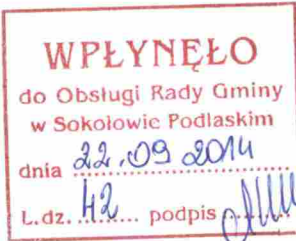 WPŁYNĘŁO
do Obsługi Rady Gminy
w Sokołowie Podlaskim
dnia 22.09 2014
L.dz. 42 podpis